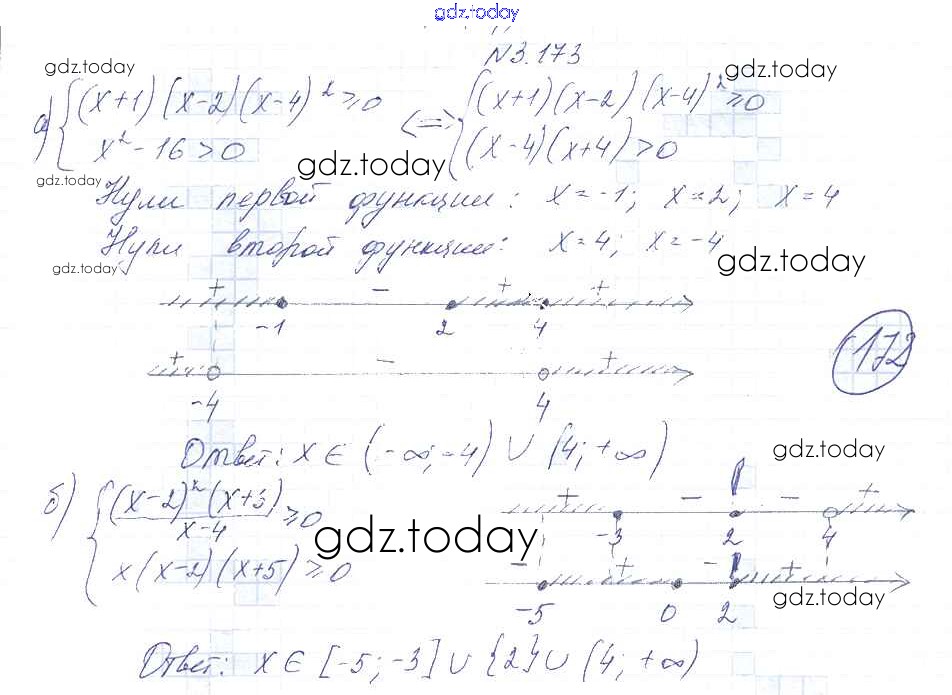 gdz.today
N3.173
gdz.today gdz.today
а) { (x+1)(x-2)(x-4)² ≥ 0 <=> { (x+1)(x-2)(x-4)² ≥ 0
x² - 16 > 0 (x-4)(x+4) > 0
gdz.today
gdz.today
Нули первой функции: x = -1; x = 2; x = 4
Нули второй функции: x = 4; x = -4
gdz.today gdz.today
+ - + +
-1 2 4
172
+ - +
-4 4
Ответ: x ∈ (-∞; -4) ∪ (4; +∞)
gdz.today
б) { (x-2)²(x+3) / x-4 ≥ 0
x(x-2)(x+5) ≥ 0
gdz.today
+ - - +
-3 2 4
- + - +
-5 0 2
gdz.today
Ответ: x ∈ [-5; -3] ∪ {2} ∪ (4; +∞)